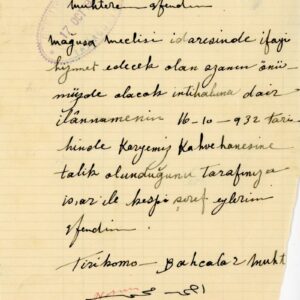 muhterem efendim
17 OCT
mağusa meclisi idaresinde ifayi
hizmet edecek olan azanın önü
müzde olacak intihabına dair
ilânnamenin 16-10-932 tari
hinde Karyemiz Kahvehanesine
talik olunduğunu tarafınıza
is'ar ile kespi şeref eylerim
efendim.
Tirikomo - Bahcalar Muht